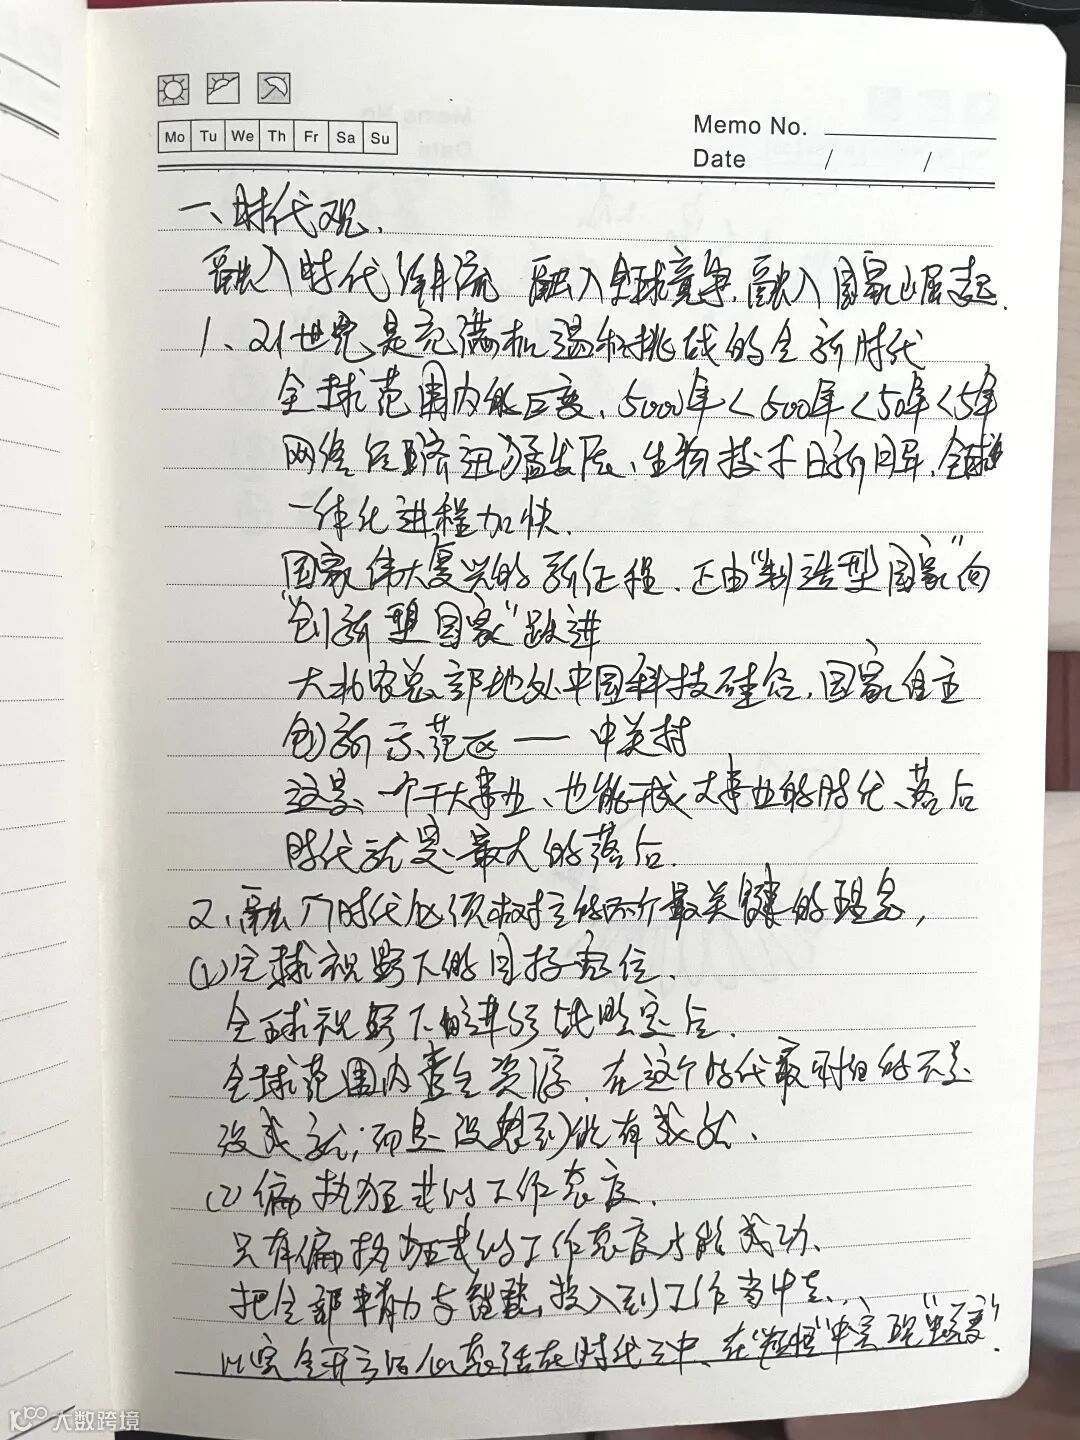 Mo Tu We Th Fr Sa Su
Memo No.
Date / /
一、时代观.
融入时代洪流 融入全球竞争,融入国家崛起.
1、21世纪是充满机遇和挑战的全新时代
全球范围内的巨变、5000年<500年<50年<5年
网络经济迅猛发展、生物技术日新月异、全球
一体化进程加快.
国家伟大复兴的新征程、正由“制造型国家”向
“创新型国家”跃进
大北农总部地处中国科技硅谷,国家自主
创新示范区——中关村
这是一个干大事业、也能干成大事业的时代、落后
时代就是最大的落后.
2、融入时代必须树立的两个最关键的理念,
(1)全球视野下的目标定位.
全球视野下的进行战略定位.
全球范围内整合资源,在这个时代最可怕的不是
没成就;而是没想到能有成就、
(2)偏执狂式的工作态度.
只有偏执狂式的工作态度才能成功、
把全部精力与智慧,投入到工作当中去、
以完全开放的心态活在时代之中、在“”中实现“”.
大数跨境